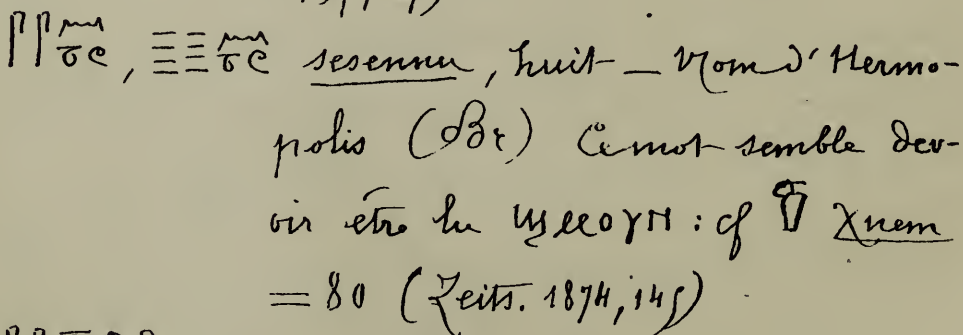 sesennu, huit — Nom d'Hermo-
polis (Br) Ce mot semble dev-
oir être lu ϣⲙⲟⲩⲛ : cf χnem
= 80 (Zeits. 1874, 145)